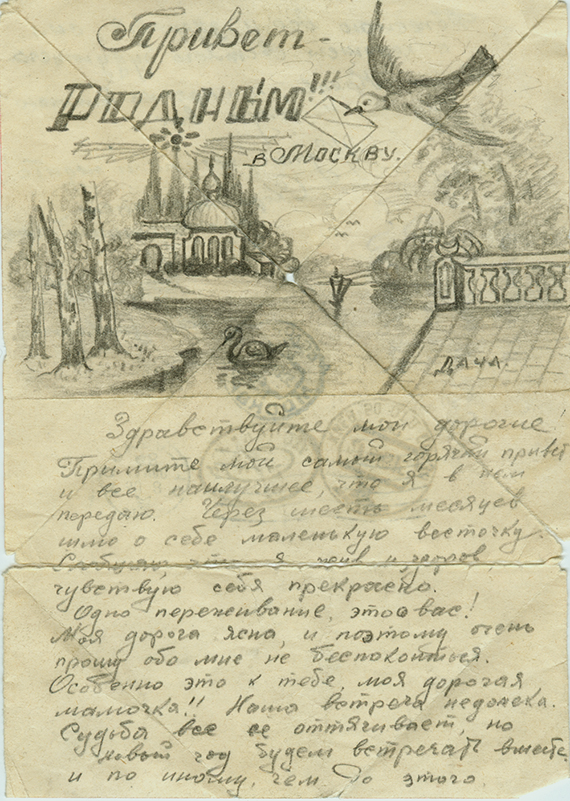 Привет-
РОДНЫМ!!!
в Москву.
ДАЧА.
Здравствуйте мои дорогие!
Примите мой самый горячий привет
и все наилучшее, что я в нем
передаю. Через шесть месяцев
шлю о себе маленькую весточку.
Сообщаю, что я жив и здоров,
чувствую себя прекрасно.
Одно переживание, это о вас!
Моя дорога ясна, и поэтому очень
прошу обо мне не беспокоиться.
Особенно это к тебе, моя дорогая
мамочка!! Наша встреча недалека.
Судьба все ее оттягивает, но
новый год будем встречать вместе
и по иному, чем до этого